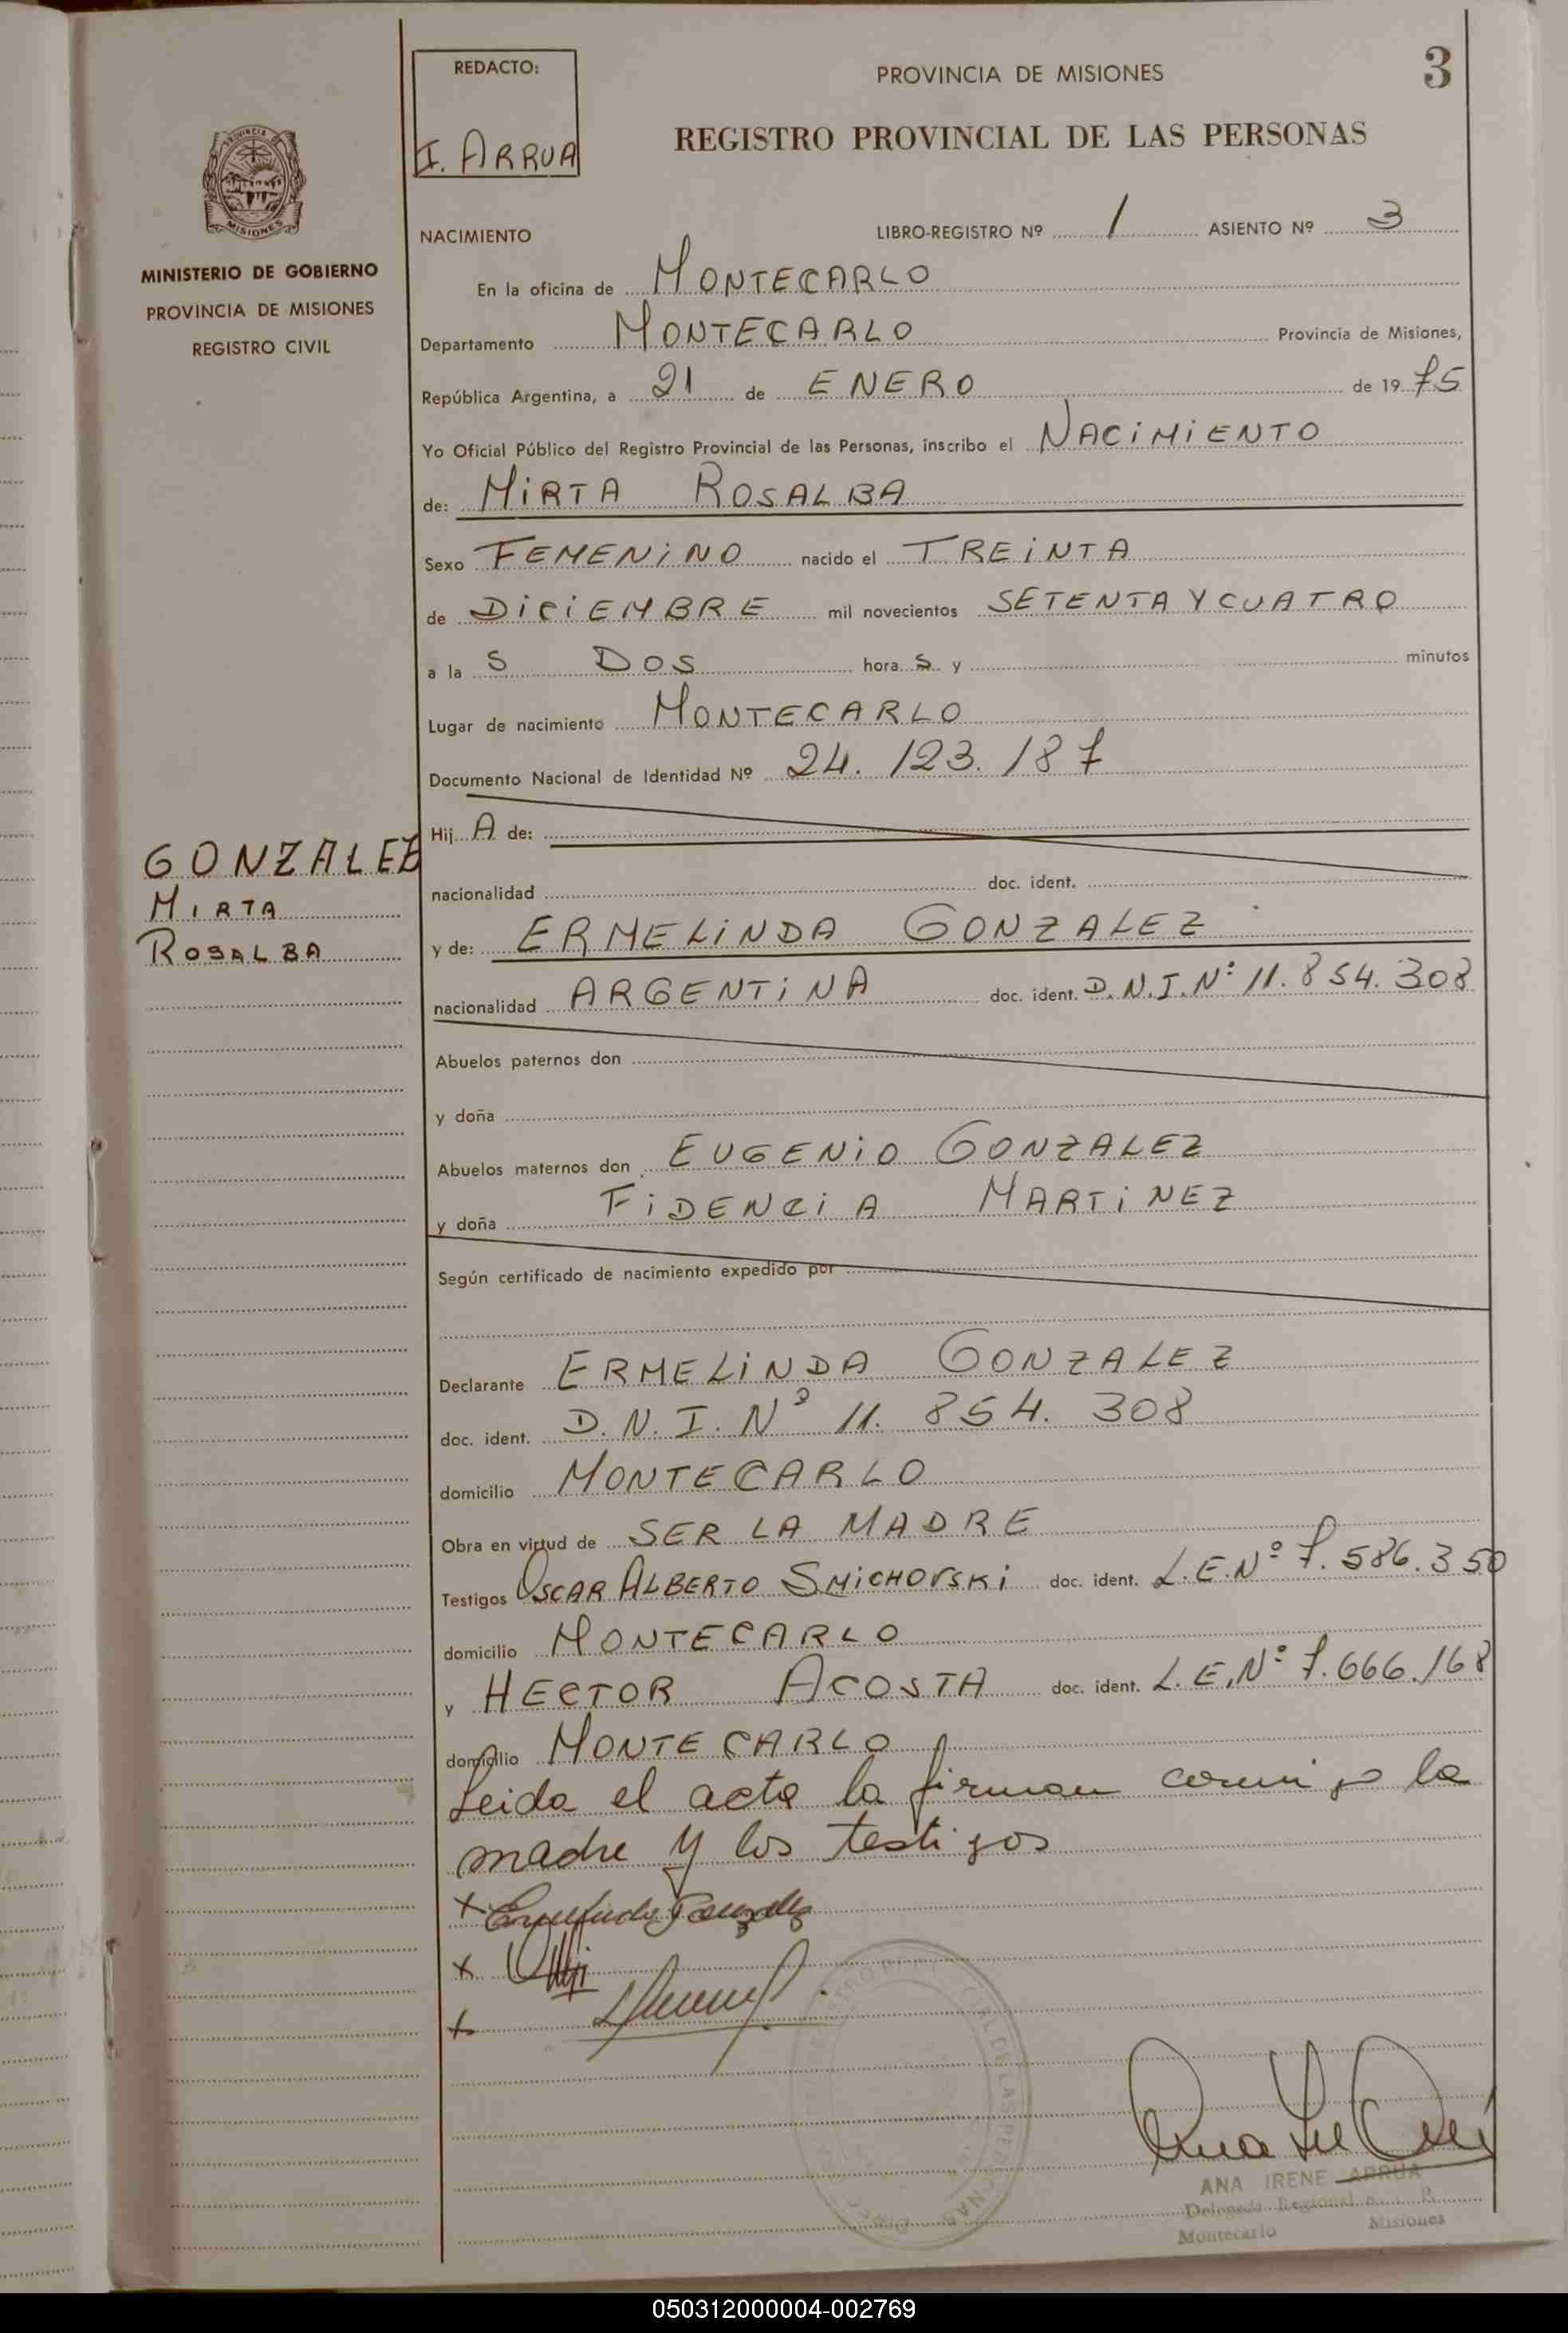 REDACTO:
I. ARRUA
PROVINCIA DE MISIONES
3
REGISTRO PROVINCIAL DE LAS PERSONAS
PROVINCIA
MISIONES
MINISTERIO DE GOBIERNO
PROVINCIA DE MISIONES
REGISTRO CIVIL
NACIMIENTO
LIBRO-REGISTRO Nº 1 ASIENTO Nº 3
En la oficina de MONTECARLO
Departamento MONTECARLO Provincia de Misiones,
República Argentina, a 21 de ENERO de 1975
Yo Oficial Público del Registro Provincial de las Personas, inscribo el NACIMIENTO
de: MIRTA ROSALBA
Sexo FEMENINO nacido el TREINTA
de DICIEMBRE mil novecientos SETENTA Y CUATRO
a la S DOS hora S y minutos
Lugar de nacimiento MONTECARLO
Documento Nacional de Identidad Nº 24.123.187
GONZALEZ
MIRTA
ROSALBA
Hij A de:
nacionalidad doc. ident.
y de: ERMELINDA GONZALEZ
nacionalidad ARGENTINA doc. ident. D.N.I.Nº 11.854.308
Abuelos paternos don
y doña
Abuelos maternos don EUGENIO GONZALEZ
y doña FIDENCIA MARTINEZ
Según certificado de nacimiento expedido por
Declarante ERMELINDA GONZALEZ
doc. ident. D.N.I.Nº 11.854.308
domicilio MONTECARLO
Obra en virtud de SER LA MADRE
Testigos OSCAR ALBERTO SMICHOVSKI doc. ident. L.E.Nº 7.586.350
domicilio MONTECARLO
y HECTOR ACOSTA doc. ident. L.E.Nº 7.666.168
domicilio MONTECARLO
Leida el acta la firman conmigo la
madre y los testigos
x Ermelinda Gonzalez
x
x
ANA IRENE ARRUA
Delegada Regional
Montecarlo Misiones
050312000004-002769